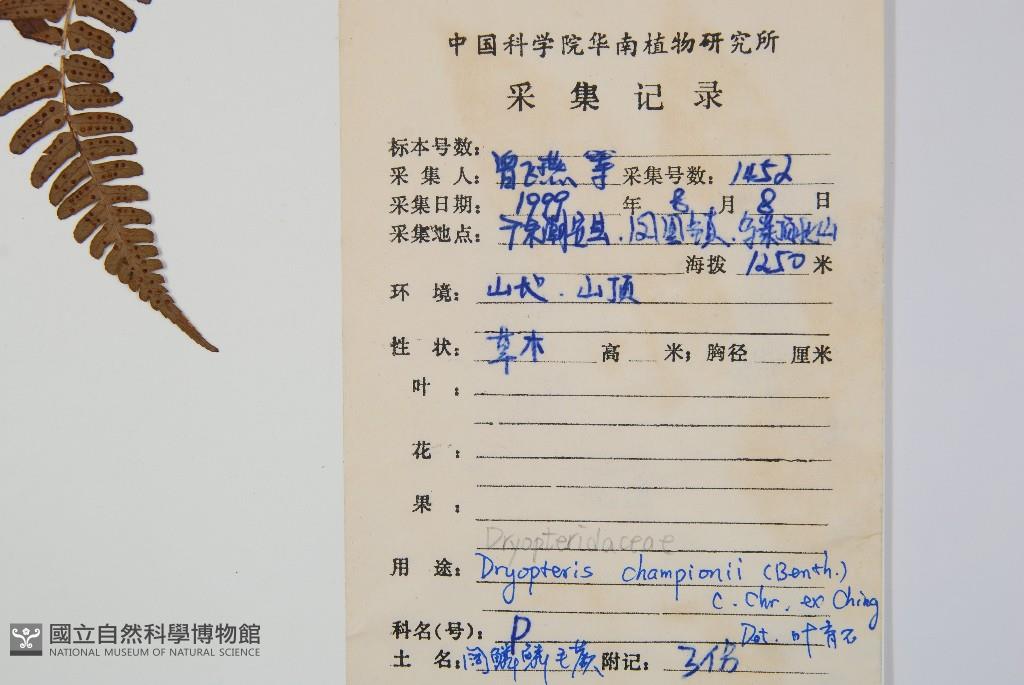 中国科学院华南植物研究所
采集记录
标本号数:
采集人: 曾飞燕 等 采集号数: 1452
采集日期: 1999 年 8 月 8 日
采集地点: 广东潮安县.凤凰镇.乌崠
海拨 1250 米
环境: 山地.山顶
性状: 草本 高 米; 胸径 厘米
叶:
花:
果:
Dryopteridaceae
用途: Dryopteris championii (Benth.)
C. Chr. ex Ching
科名(号): P Det. 叶育石
土名: 阔鳞鳞毛蕨 附记: 3份
國立自然科學博物館
NATIONAL MUSEUM OF NATURAL SCIENCE